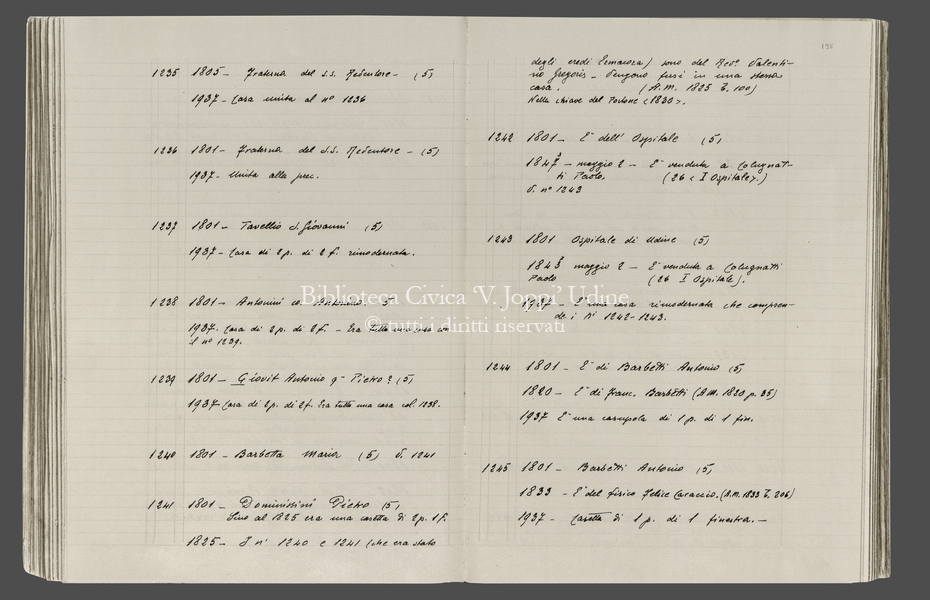 1235 1805 - Fraterna del S.S. Redentore - (5)
1937 - Casa unita al nº 1236
1236 1801 - Fraterna del S.S. Redentore - (5)
1937 - Unita alla prec.
1237 1801 - Tavellio S. Giovanni (5)
1937 - Casa di 2 p. di 2 f. rimodernata.
1238 1801 - Antonini
1937. Casa di 2 p. di 2 f. - Era tutta una casa
il nº 1239.
1239 1801 - Giovit Antonio q^m Pietro? (5)
1937 - Casa di 2 p. di 2 f. Era tutta una casa col 1238.
1240 1801 - Barbetta Maria (5) V. 1241
1241 1801 - Dominissini Pietro (5)
Sino al 1825 era una casetta di 2 p. 1 f.
1825 - I n.i 1240 e 1241 (che era stato
195
degli eredi Ermacora) sono del Rev.º Valenti-
no Gregoris - Vengono fusi in una stessa
casa. (A.M. 1825 E. 100)
Nella chiave del Portone <1830>.
1242 1801 - E' dell' Ospitale (5)
1847 - maggio 2 - E' venduta a Colugnat-
ti Paolo. (26 < I Ospitale>.)
V. nº 1243
1243 1801 Ospitale di Udine (5)
1843 maggio 2 - E' venduta a Colugnatti
Paolo (26 I Ospitale).
1937 - E' una casa rimodernata che compren-
de i N.i 1242-1243.
1244 1801 - E' di Barbetti Antonio (5)
1820 - E' di Franc. Barbetti (A.M. 1820 p. 35)
1937 E' una casupola di 1 p. di 1 fin.
1245 1801 - Barbetti Antonio (5)
1833 - E' del fisico Felice Caraccio. (A.M. 1833 E. 206)
1937 - Casetta di 1 p. di 1 finestra. -
Biblioteca Civica 'V. Joppi' Udine
© tutti i diritti riservati